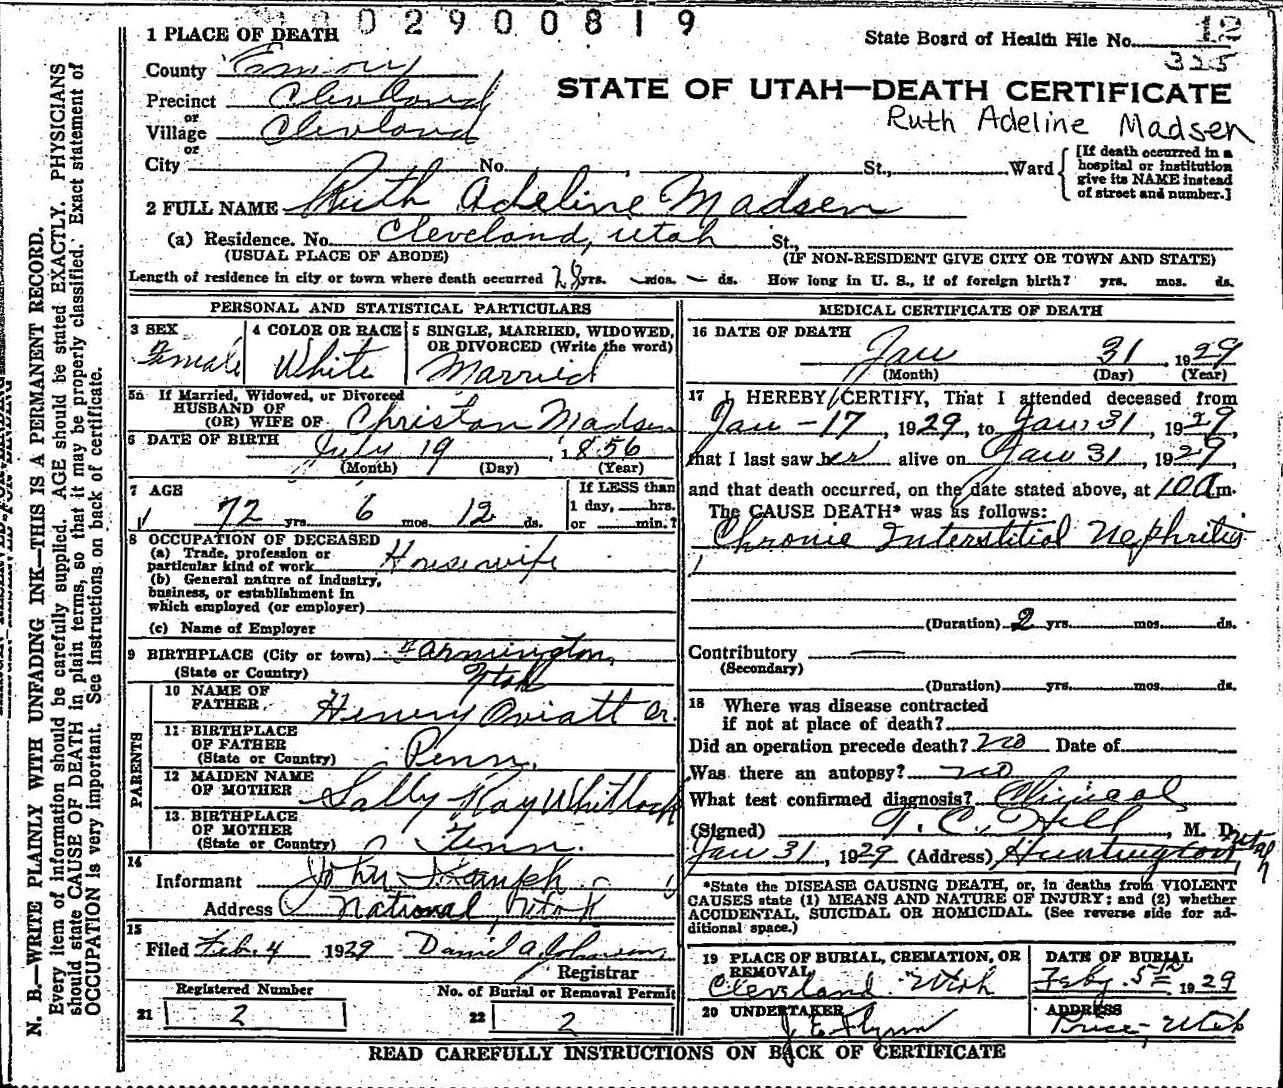 002900819
1 PLACE OF DEATH
State Board of Health File No. 12
325
County Emery
STATE OF UTAH—DEATH CERTIFICATE
Precinct Cleveland
Ruth Adeline Madsen
or
Village Cleveland
or
City No. St., Ward
[If death occurred in a hospital or institution give its NAME instead of street and number.]
2 FULL NAME Ruth Adeline Madsen
(a) Residence. No. Cleveland, Utah St.,
(USUAL PLACE OF ABODE) (IF NON-RESIDENT GIVE CITY OR TOWN AND STATE)
Length of residence in city or town where death occurred 28 yrs. — mos. — ds. How long in U. S., if of foreign birth? yrs. mos. ds.
PERSONAL AND STATISTICAL PARTICULARS
3 SEX
Female
4 COLOR OR RACE
White
5 SINGLE, MARRIED, WIDOWED,
OR DIVORCED (Write the word)
Married
5a If Married, Widowed, or Divorced
HUSBAND OF
(OR) WIFE OF Christan Madsen
6 DATE OF BIRTH July 19, 1856
(Month) (Day) (Year)
7 AGE
72 yrs. 6 mos. 12 ds.
If LESS than
1 day, hrs.
or min.?
8 OCCUPATION OF DECEASED
(a) Trade, profession or
particular kind of work Housewife
(b) General nature of industry,
business, or establishment in
which employed (or employer)
(c) Name of Employer
9 BIRTHPLACE (City or town) Farmington,
(State or Country) Utah
PARENTS
10 NAME OF
FATHER Henry Oviatt Sr.
11 BIRTHPLACE
OF FATHER
(State or Country) Penn.
12 MAIDEN NAME
OF MOTHER Sally Kay Whitlock
13 BIRTHPLACE
OF MOTHER
(State or Country) Tenn.
14
Informant John
Address National, Utah
15
Filed Feb. 4 1929 Daniel A. Johnson
Registrar
Registered Number No. of Burial or Removal Permit
21 2 22 2
MEDICAL CERTIFICATE OF DEATH
16 DATE OF DEATH
Jan 31 1929
(Month) (Day) (Year)
17 I HEREBY CERTIFY, That I attended deceased from
Jan - 17, 1929, to Jan 31, 1929,
that I last saw her alive on Jan 31, 1929,
and that death occurred, on the date stated above, at 10 a m.
The CAUSE DEATH* was as follows:
Chronic Interstitial Nephritis
(Duration) 2 yrs. mos. ds.
Contributory —
(Secondary)
(Duration) yrs. mos. ds.
18 Where was disease contracted
if not at place of death?
Did an operation precede death? No Date of
Was there an autopsy? no
What test confirmed diagnosis? Clinical
(Signed) T. C. Hill, M. D.
Jan 31, 1929 (Address) Huntington Utah
*State the DISEASE CAUSING DEATH, or, in deaths from VIOLENT
CAUSES state (1) MEANS AND NATURE OF INJURY; and (2) whether
ACCIDENTAL, SUICIDAL OR HOMICIDAL. (See reverse side for ad-
ditional space.)
19 PLACE OF BURIAL, CREMATION, OR
REMOVAL
Cleveland Utah
DATE OF BURIAL
Feby. 5th 1929
20 UNDERTAKER
J. E. Flynn
ADDRESS
Price, Utah
READ CAREFULLY INSTRUCTIONS ON BACK OF CERTIFICATE
N. B.—WRITE PLAINLY WITH UNFADING INK—THIS IS A PERMANENT RECORD.
Every item of information should be carefully supplied. AGE should be stated EXACTLY. PHYSICIANS
should state CAUSE OF DEATH in plain terms, so that it may be properly classified. Exact statement of
OCCUPATION is very important. See instructions on back of certificate.